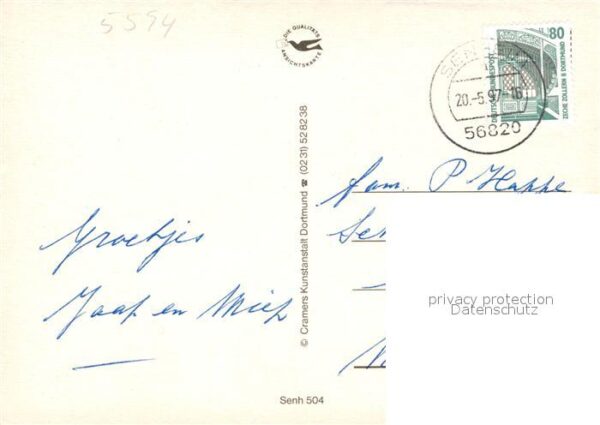 5594
DIE QUALITÄTS
ANSICHTSKARTE
80
DEUTSCHE BUNDESPOST
ZECHE ZOLLERN II DORTMUND
20.-5.97-16
56820
© Cramers Kunstanstalt Dortmund ☎ (0231) 528238
Groetjes
Jaap en Miep
Fam. P Happe
privacy protection
Datenschutz
Senh 504